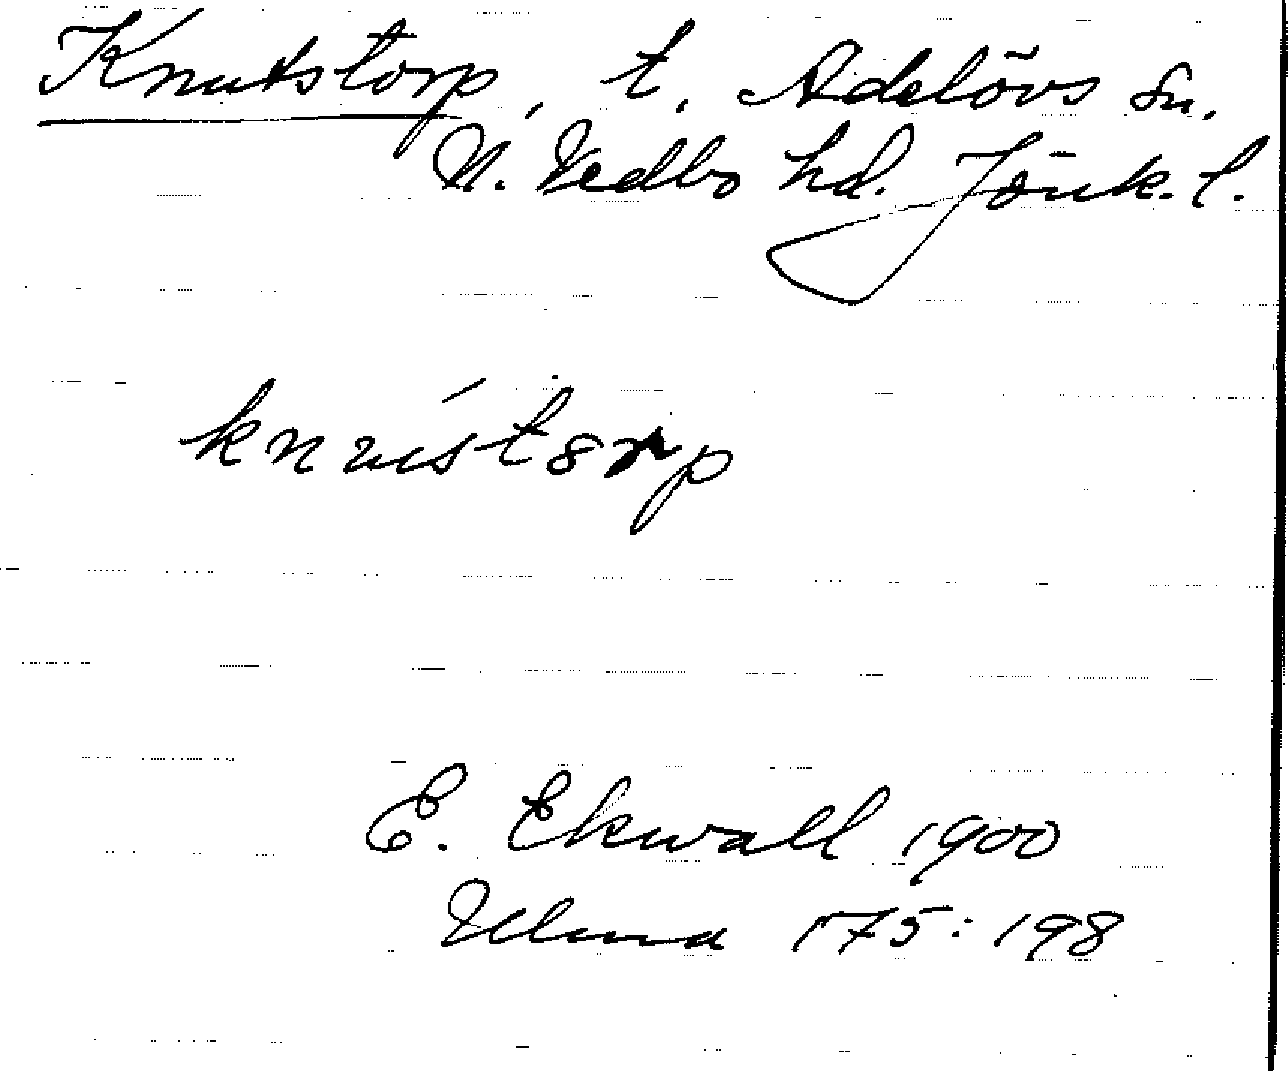 Knutstorp, t. Adelövs sn.
N. Vedbo hd. Jönk. l.
knústorp
E. Ekwall 1900
Ulma 175:198